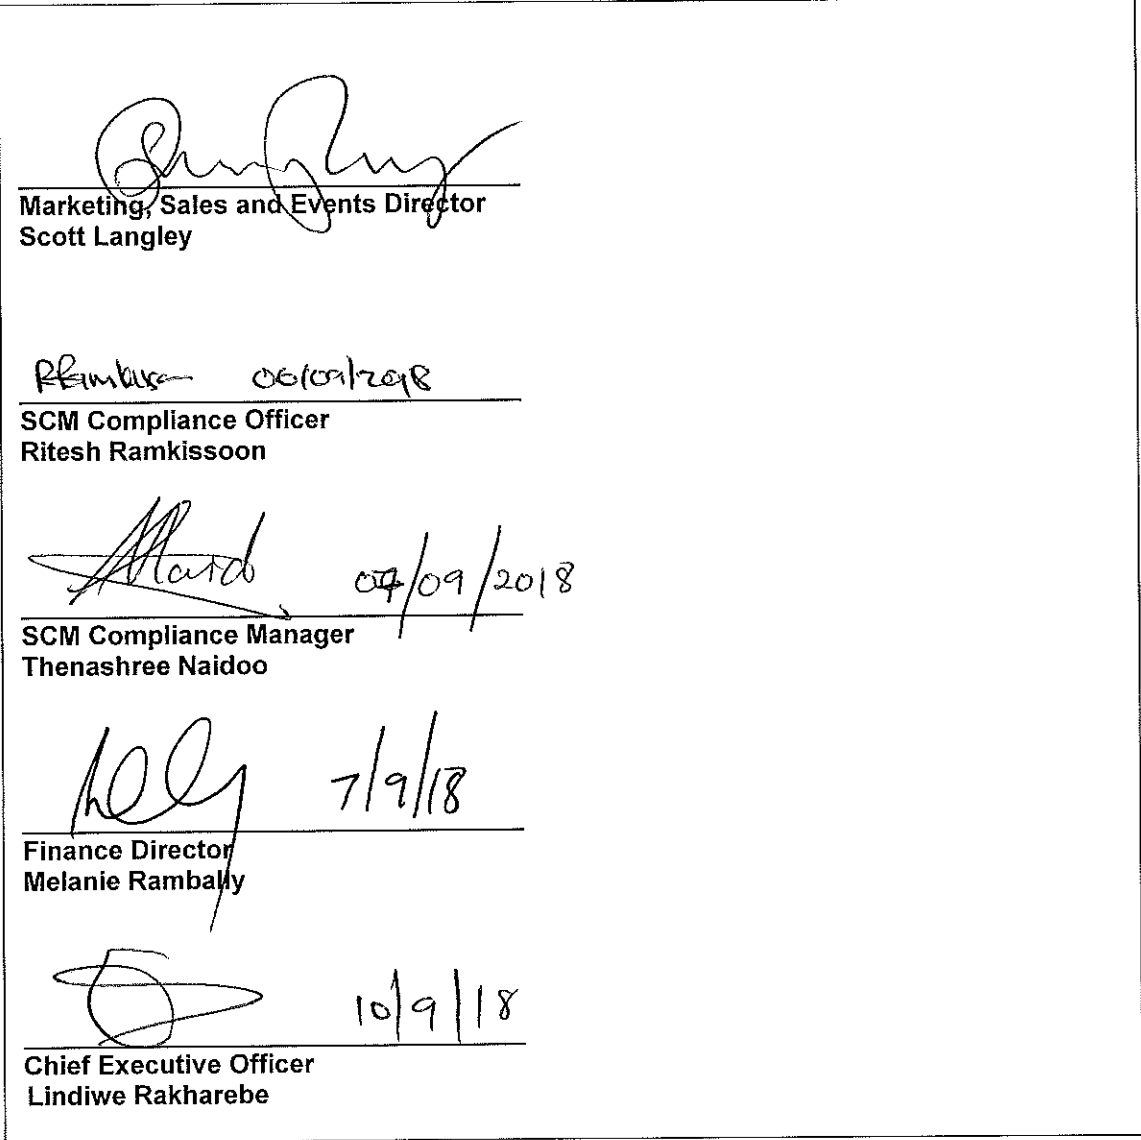 Marketing, Sales and Events Director
Scott Langley
06/09/2018
SCM Compliance Officer
Ritesh Ramkissoon
07/09/2018
SCM Compliance Manager
Thenashree Naidoo
7/9/18
Finance Director
Melanie Rambally
10/9/18
Chief Executive Officer
Lindiwe Rakharebe